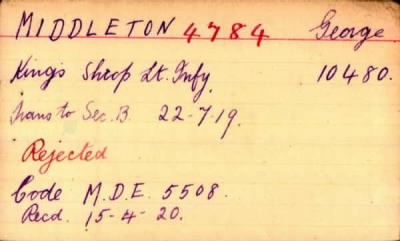 MIDDLETON 4784 George
Kings Shrop Lt. Infy 10480.
Trans to Sec. B. 22-7-19.
Rejected
Code M.D.E. 5508.
Recd. 15-4-20.